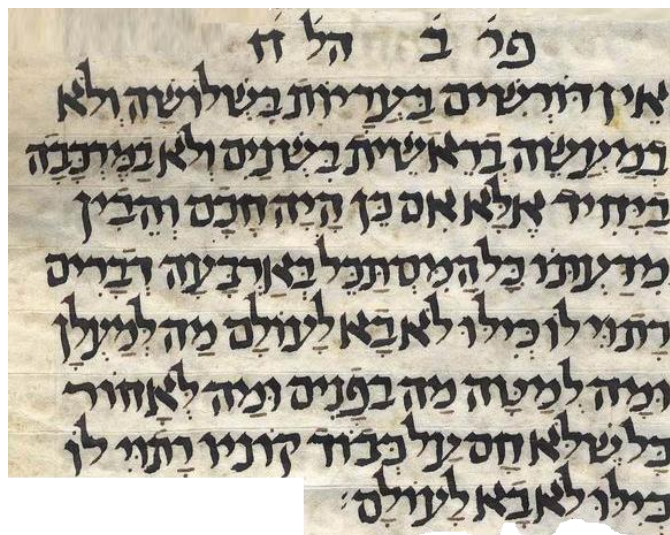 פר ב הל ח
אין דורשים בעריות בשלושה ולא
במעשה בראשית בשנים ולא במרכבה
ביחיד אלא אם כן היה חכם והבין
מדעתו כל המסתכל בארבעה דברים
רתוי לו כילו לא בא לעולם מה למעלן
ומה למטה מה בפנים ומה לאחור
כל שלא חס על כבוד קוניו רתוי לו
כילו לא בא לעולם׃